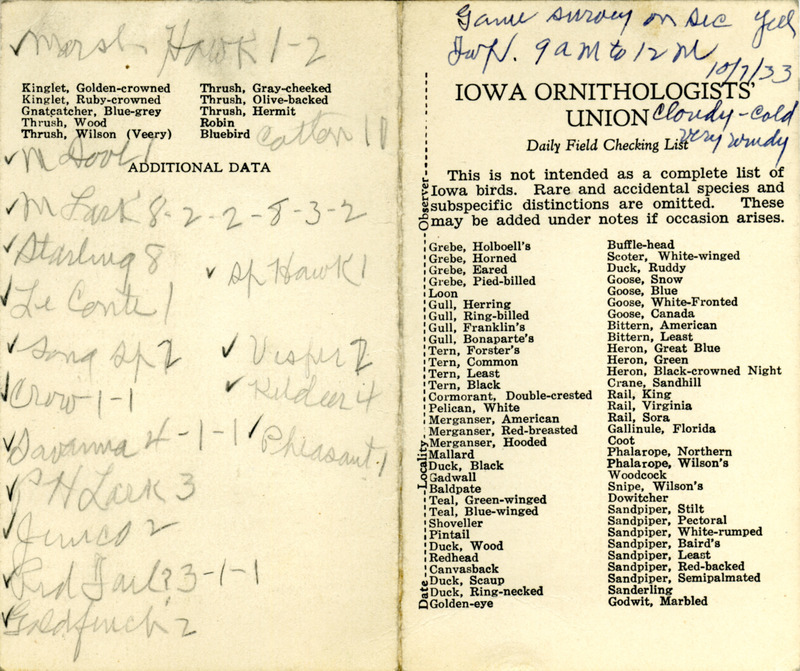 Marsh Hawk 1-2
Kinglet, Golden-crowned
Kinglet, Ruby-crowned
Gnatcatcher, Blue-grey
Thrush, Wood
Thrush, Wilson (Veery)
Thrush, Gray-cheeked
Thrush, Olive-backed
Thrush, Hermit
Robin
Bluebird
Cotton 10
M Dove 1
ADDITIONAL DATA
M Lark 8-2-2-8-3-2
Starling 8
Sp Hawk 1
Le Conte 1
Song Sp 2
Vesper 2
Crow 1-1
Kildeer 4
Savanna 4-1-1
Pheasant 1
P H Lark 3
Junco 2
Red Tail ? 3-1-1
Goldfinch 2
Game survey on Sec
Twp. 9 am to 12 M
10/7/33
IOWA ORNITHOLOGISTS'
UNION
Cloudy - Cold
very windy
Daily Field Checking List
This is not intended as a complete list of
Iowa birds. Rare and accidental species and
subspecific distinctions are omitted. These
may be added under notes if occasion arises.
Date Locality Observer
Grebe, Holboell's
Grebe, Horned
Grebe, Eared
Grebe, Pied-billed
Loon
Gull, Herring
Gull, Ring-billed
Gull, Franklin's
Gull, Bonaparte's
Tern, Forster's
Tern, Common
Tern, Least
Tern, Black
Cormorant, Double-crested
Pelican, White
Merganser, American
Merganser, Red-breasted
Merganser, Hooded
Mallard
Duck, Black
Gadwall
Baldpate
Teal, Green-winged
Teal, Blue-winged
Shoveller
Pintail
Duck, Wood
Redhead
Canvasback
Duck, Scaup
Duck, Ring-necked
Golden-eye
Buffle-head
Scoter, White-winged
Duck, Ruddy
Goose, Snow
Goose, Blue
Goose, White-Fronted
Goose, Canada
Bittern, American
Bittern, Least
Heron, Great Blue
Heron, Green
Heron, Black-crowned Night
Crane, Sandhill
Rail, King
Rail, Virginia
Rail, Sora
Gallinule, Florida
Coot
Phalarope, Northern
Phalarope, Wilson's
Woodcock
Snipe, Wilson's
Dowitcher
Sandpiper, Stilt
Sandpiper, Pectoral
Sandpiper, White-rumped
Sandpiper, Baird's
Sandpiper, Least
Sandpiper, Red-backed
Sandpiper, Semipalmated
Sanderling
Godwit, Marbled